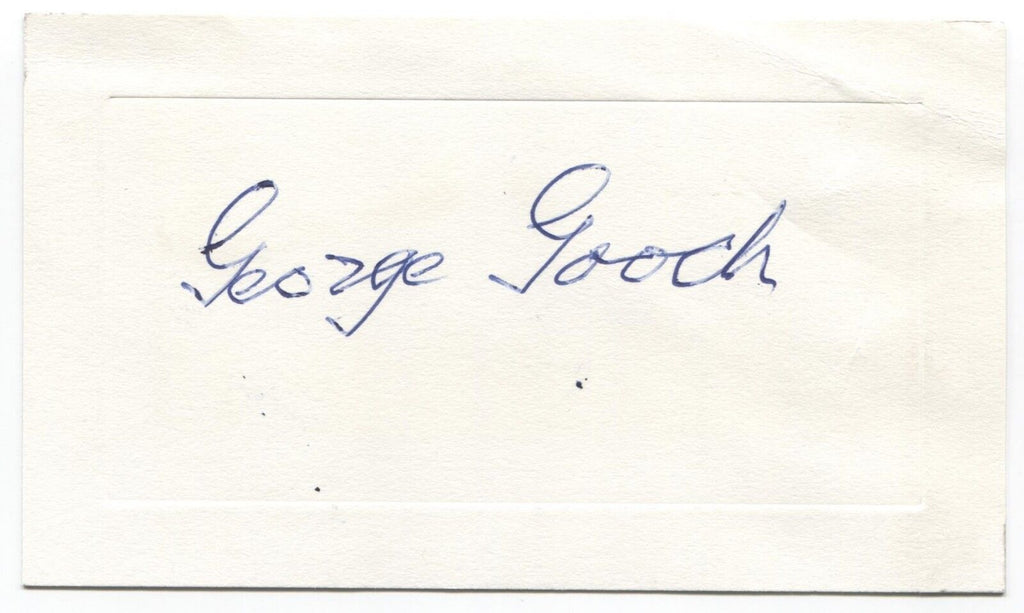 George Gooch